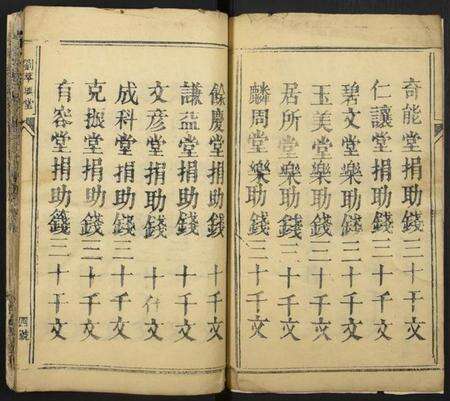 奇能堂捐助錢三十千文
仁讓堂捐助錢二十千文
碧文堂樂助錢二十千文
玉美堂樂助錢三十千文
居所堂樂助錢三十千文
麟周堂樂助錢三十千文
餘慶堂捐助錢十千文
謙益堂捐助錢十千文
文彥堂捐助錢十千文
成科堂捐助錢二十千文
克振堂捐助錢三十千文
有容堂捐助錢三十千文
四號